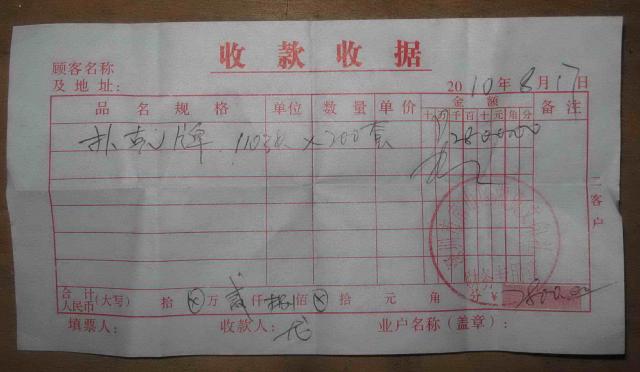 收款收据
顾客名称
及地址:
2010年8月17日
品名规格 单位 数量 单价 金额 备注
十万千百十元角分
牌 ×200套 280000
二客户
合计
人民币(大写) 拾⊗万贰仟捌佰⊗拾元角分 ¥2800.00
填票人: 收款人: 业户名称(盖章):